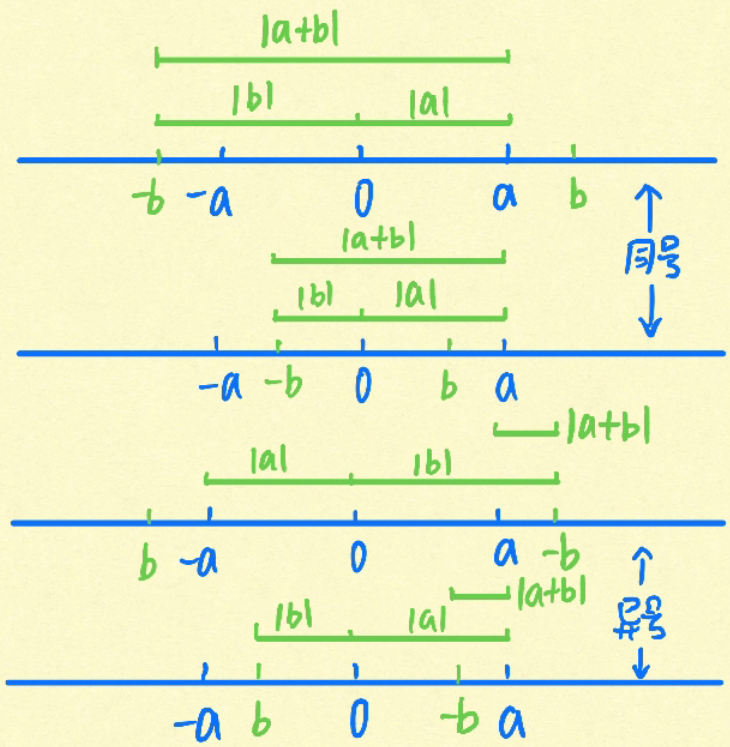 |a+b|
|b| |a|
-b -a 0 a b
同号
|a+b|
|b| |a|
-a -b 0 b a
|a+b|
|a| |b|
b -a 0 a -b
异号
|a+b|
|b| |a|
-a b 0 -b a